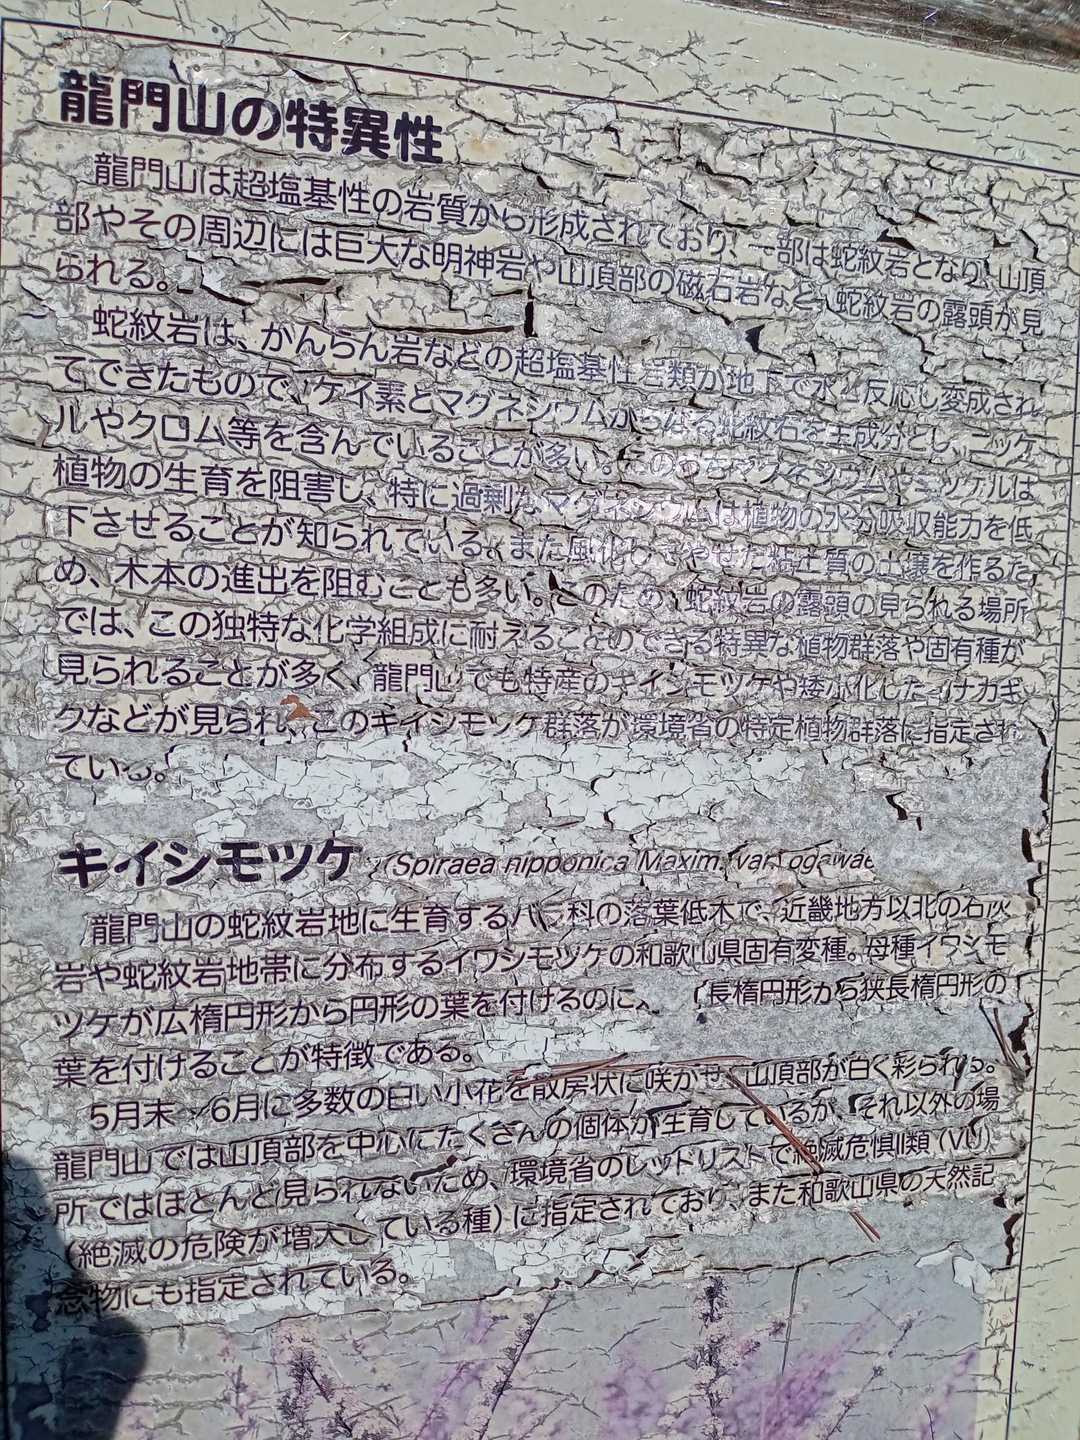 龍門山の特異性
龍門山は超塩基性の岩質から形成されており、一部は蛇紋岩となり、山頂
部やその周辺には巨大な明神岩や山頂部の磁石岩など、蛇紋岩の露頭が見
られる。
蛇紋岩は、かんらん岩などの超塩基性岩類が地下で水と反応し変成され
てできたもので、ケイ素とマグネシウムからなる蛇紋石を主成分とし、ニッケ
ルやクロム等を含んでいることが多い。このうちマグネシウムやニッケルは
植物の生育を阻害し、特に過剰なマグネシウムは植物の水分吸収能力を低
下させることが知られている。また風化しやせた粘土質の土壌を作るた
め、木本の進出を阻むことも多い。このため、蛇紋岩の露頭の見られる場所
では、この独特な化学組成に耐えることのできる特異な植物群落や固有種が
見られることが多く、龍門山でも特産のキイシモツケや矮小化したイナカギ
クなどが見られ、このキイシモツケ群落が環境省の特定植物群落に指定され
ている。
キイシモツケ (Spiraea nipponica Maxim. var. ogawae
龍門山の蛇紋岩地に生育するバラ科の落葉低木で、近畿地方以北の石灰
岩や蛇紋岩地帯に分布するイワシモツケの和歌山県固有変種。母種イワシモ
ツケが広楕円形から円形の葉を付けるのに、長楕円形から狭長楕円形の
葉を付けることが特徴である。
5月末~6月に多数の白い小花を散房状に咲かせ、山頂部が白く彩られる。
龍門山では山頂部を中心にたくさんの個体が生育しているが、それ以外の場
所ではほとんど見られないため、環境省のレッドリストで絶滅危惧Ⅱ類(VU)
(絶滅の危険が増大している種)に指定されており、また和歌山県の天然記
念物にも指定されている。